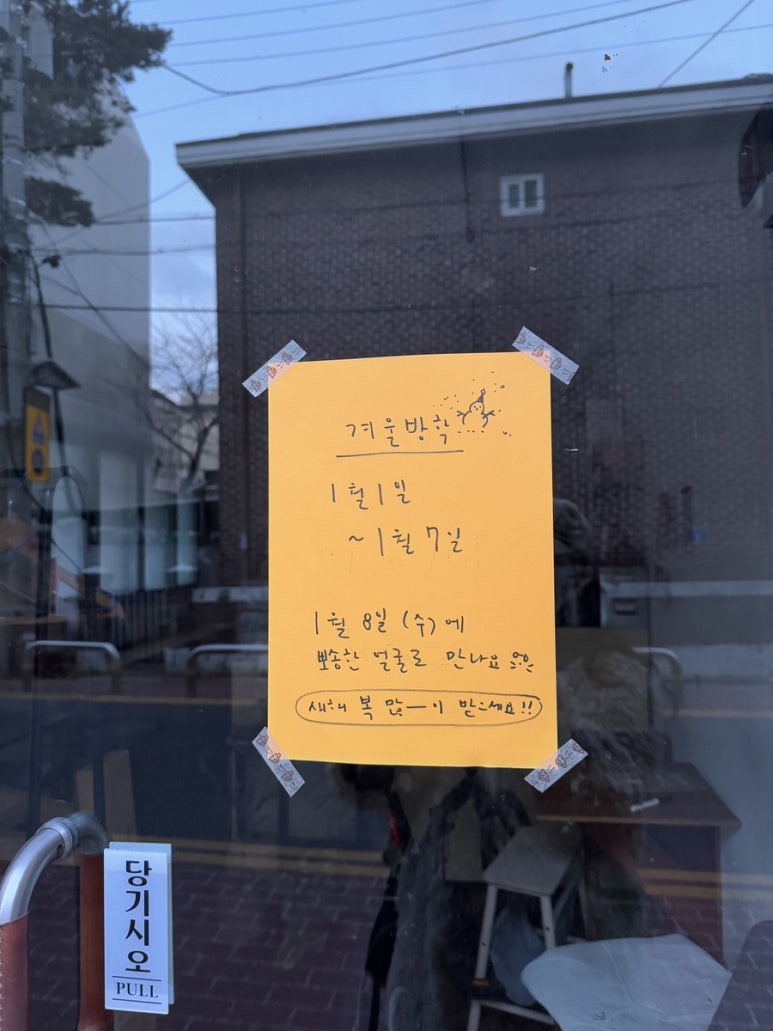 겨울방학
1월 1일
~ 1월 7일
1월 8일 (수)에
뽀송한 얼굴로 만나요
새해 복 많ㅡ이 받으세요!!
당기시오
PULL